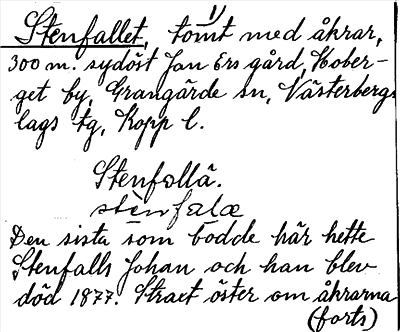 Stenfallet, tomt med åkrar, 1)
300 m. sydöst Jan Ers gård, Hober-
get by, Grangärde sn, Västerbergs
lags tg, Kopp l.
Stenfallä.
stènfalæ
Den sista som bodde här hette
Stenfalls Johan och han blev
död 1877. Straet öster om åkrarna
(forts)